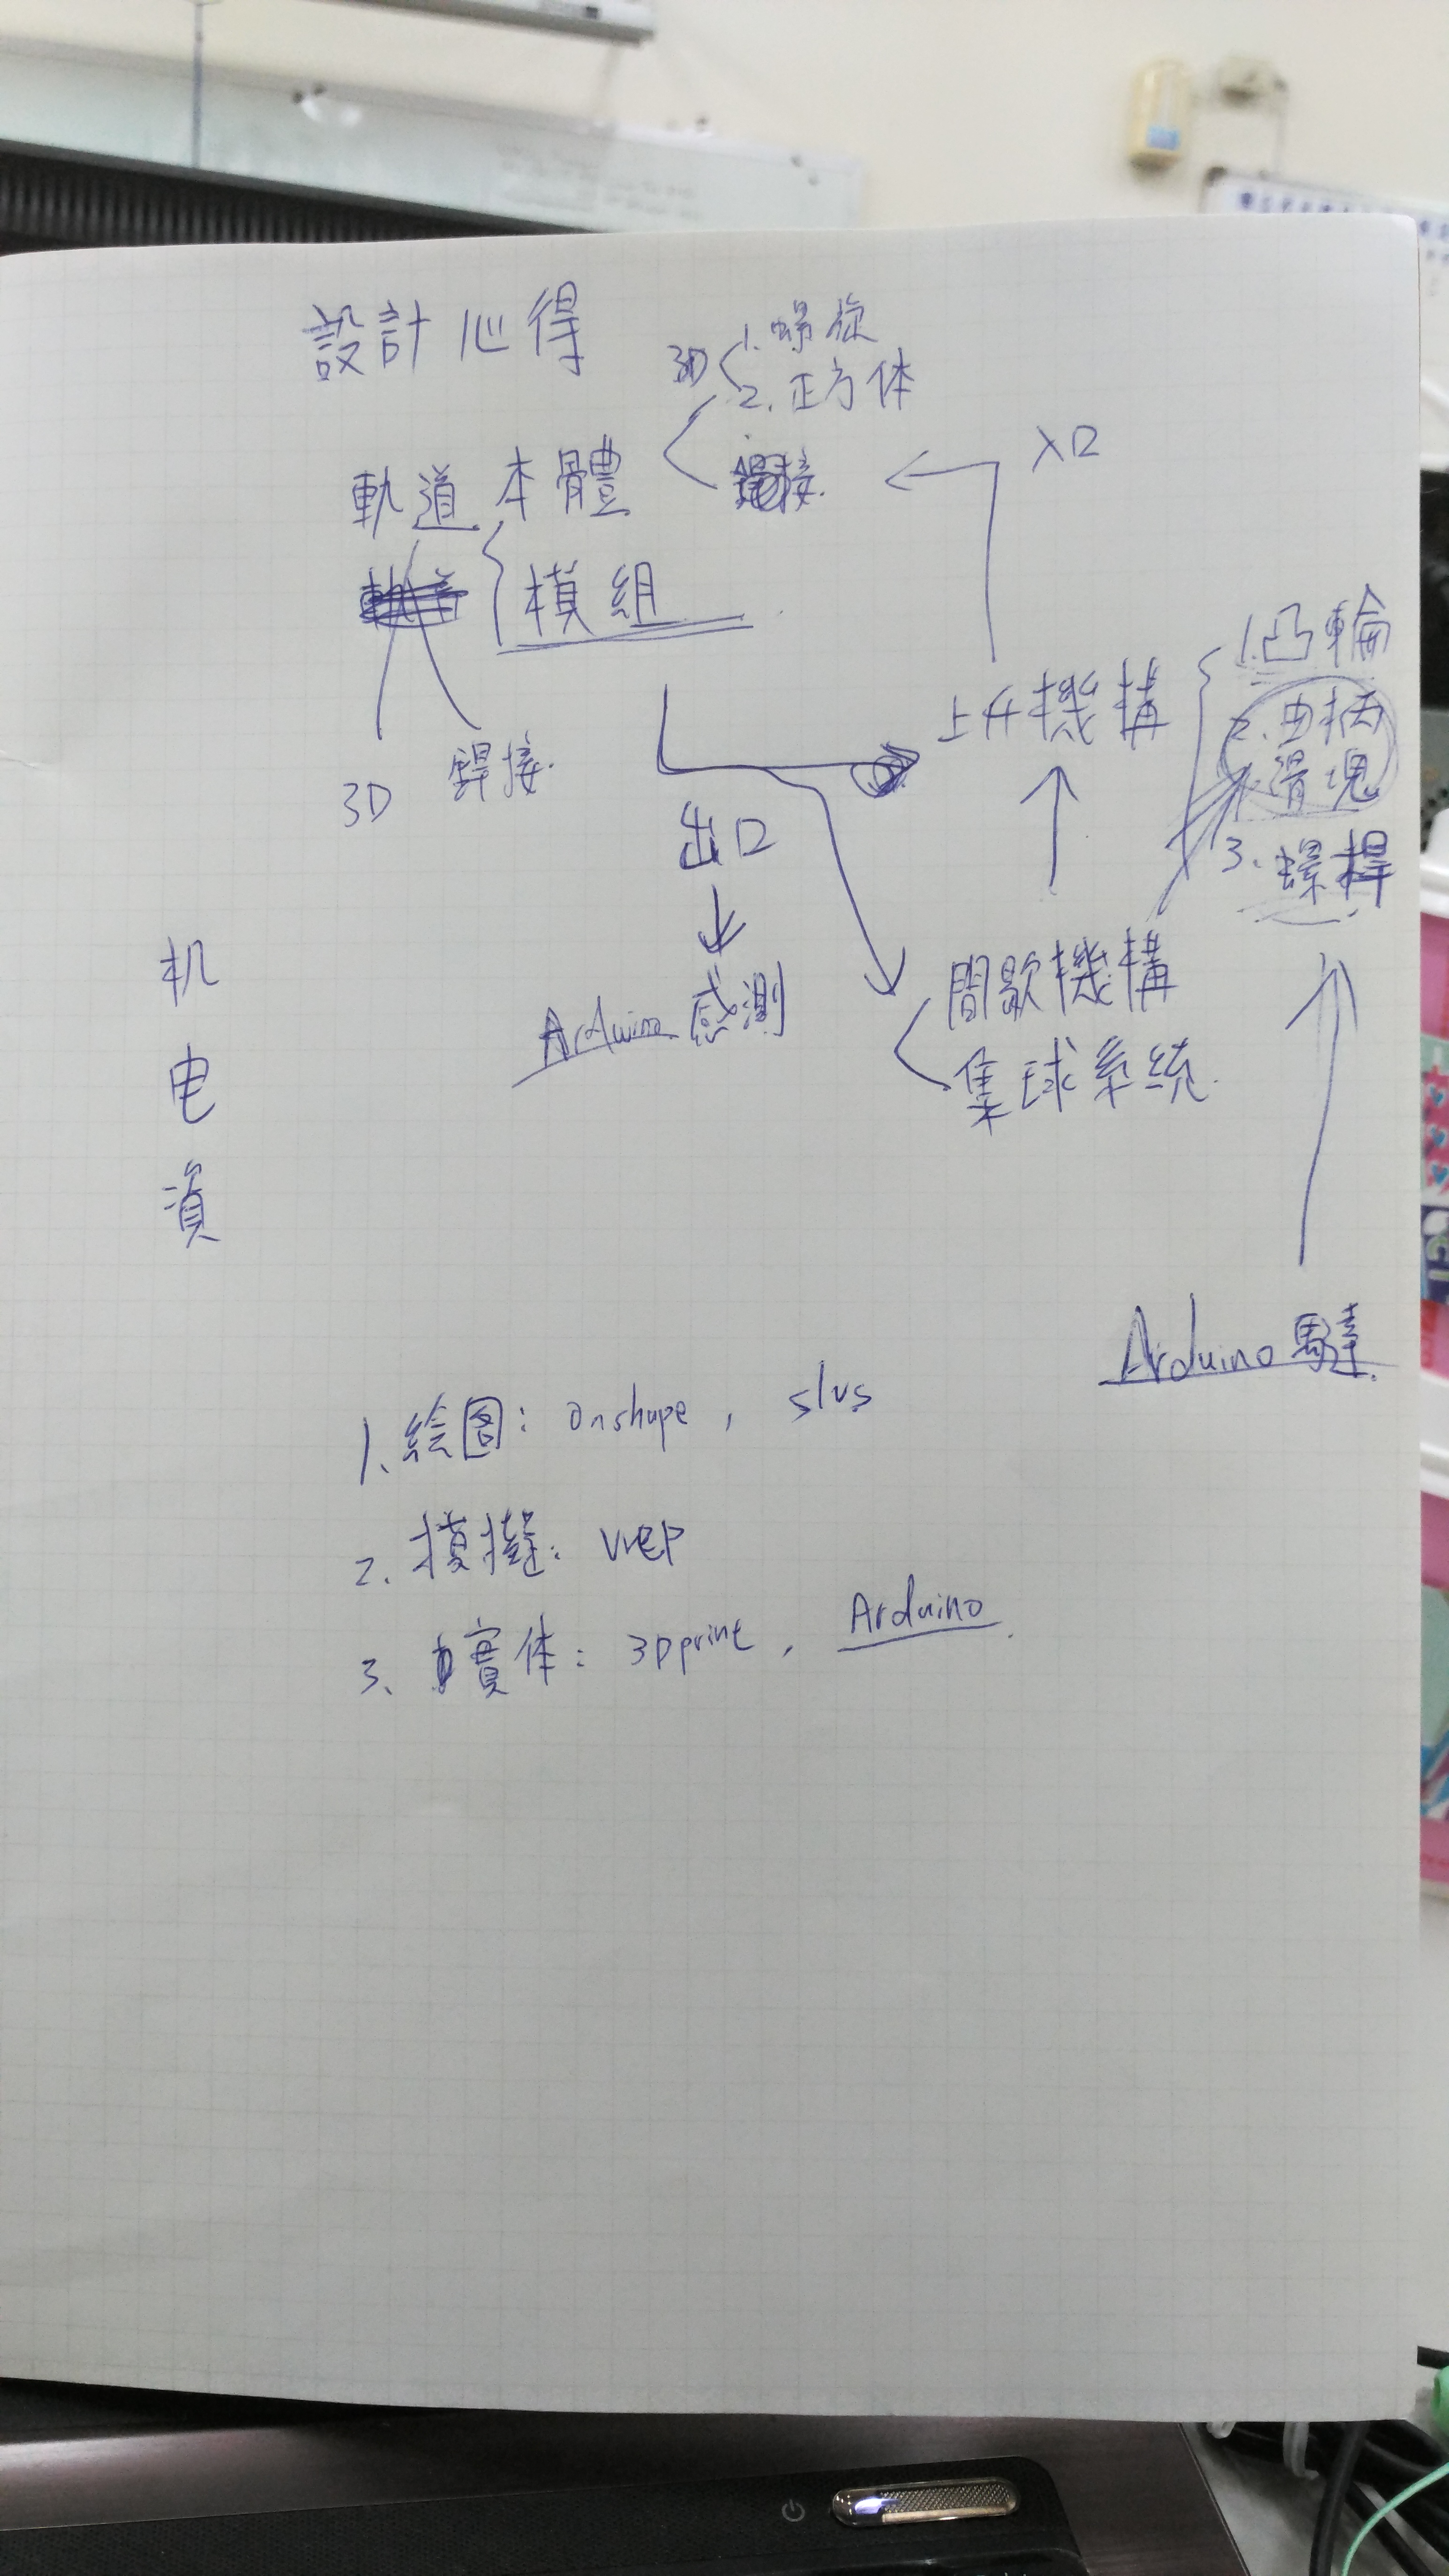 設計心得
3D
1. 螺旋
2. 正方体
入口
軌道本體
銲接.
模組
1. 凸輪
上升機構
2. 曲柄
滑塊
3. 螺桿
3D
銲接.
出口
Arduino 感測
間歇機構
集球系統.
机
电
資
Arduino 馬達.
1. 絵图: onshape, slvs
2. 模擬: vrep
3. 實体: 3Dprint, Arduino.